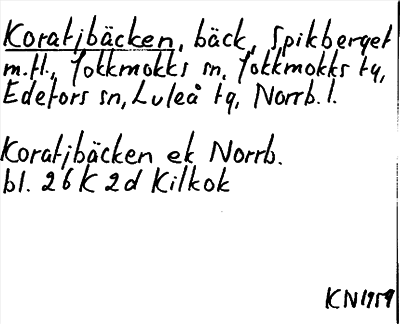 Koratjbäcken, bäck, Spikberget
m.fl., Jokkmokks sn, Jokkmokks tg,
Edefors sn, Luleå tg, Norrb. l.
Koratjbäcken ek Norrb.
bl. 26 K 2 d Kilkok
KN 1959